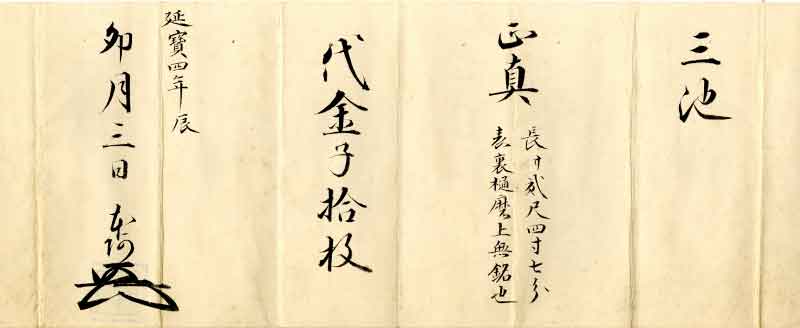 三池
正真
長サ貳尺四寸七分
表裏樋磨上無銘也
代金子拾枚
延寳四年辰
卯月三日 本阿